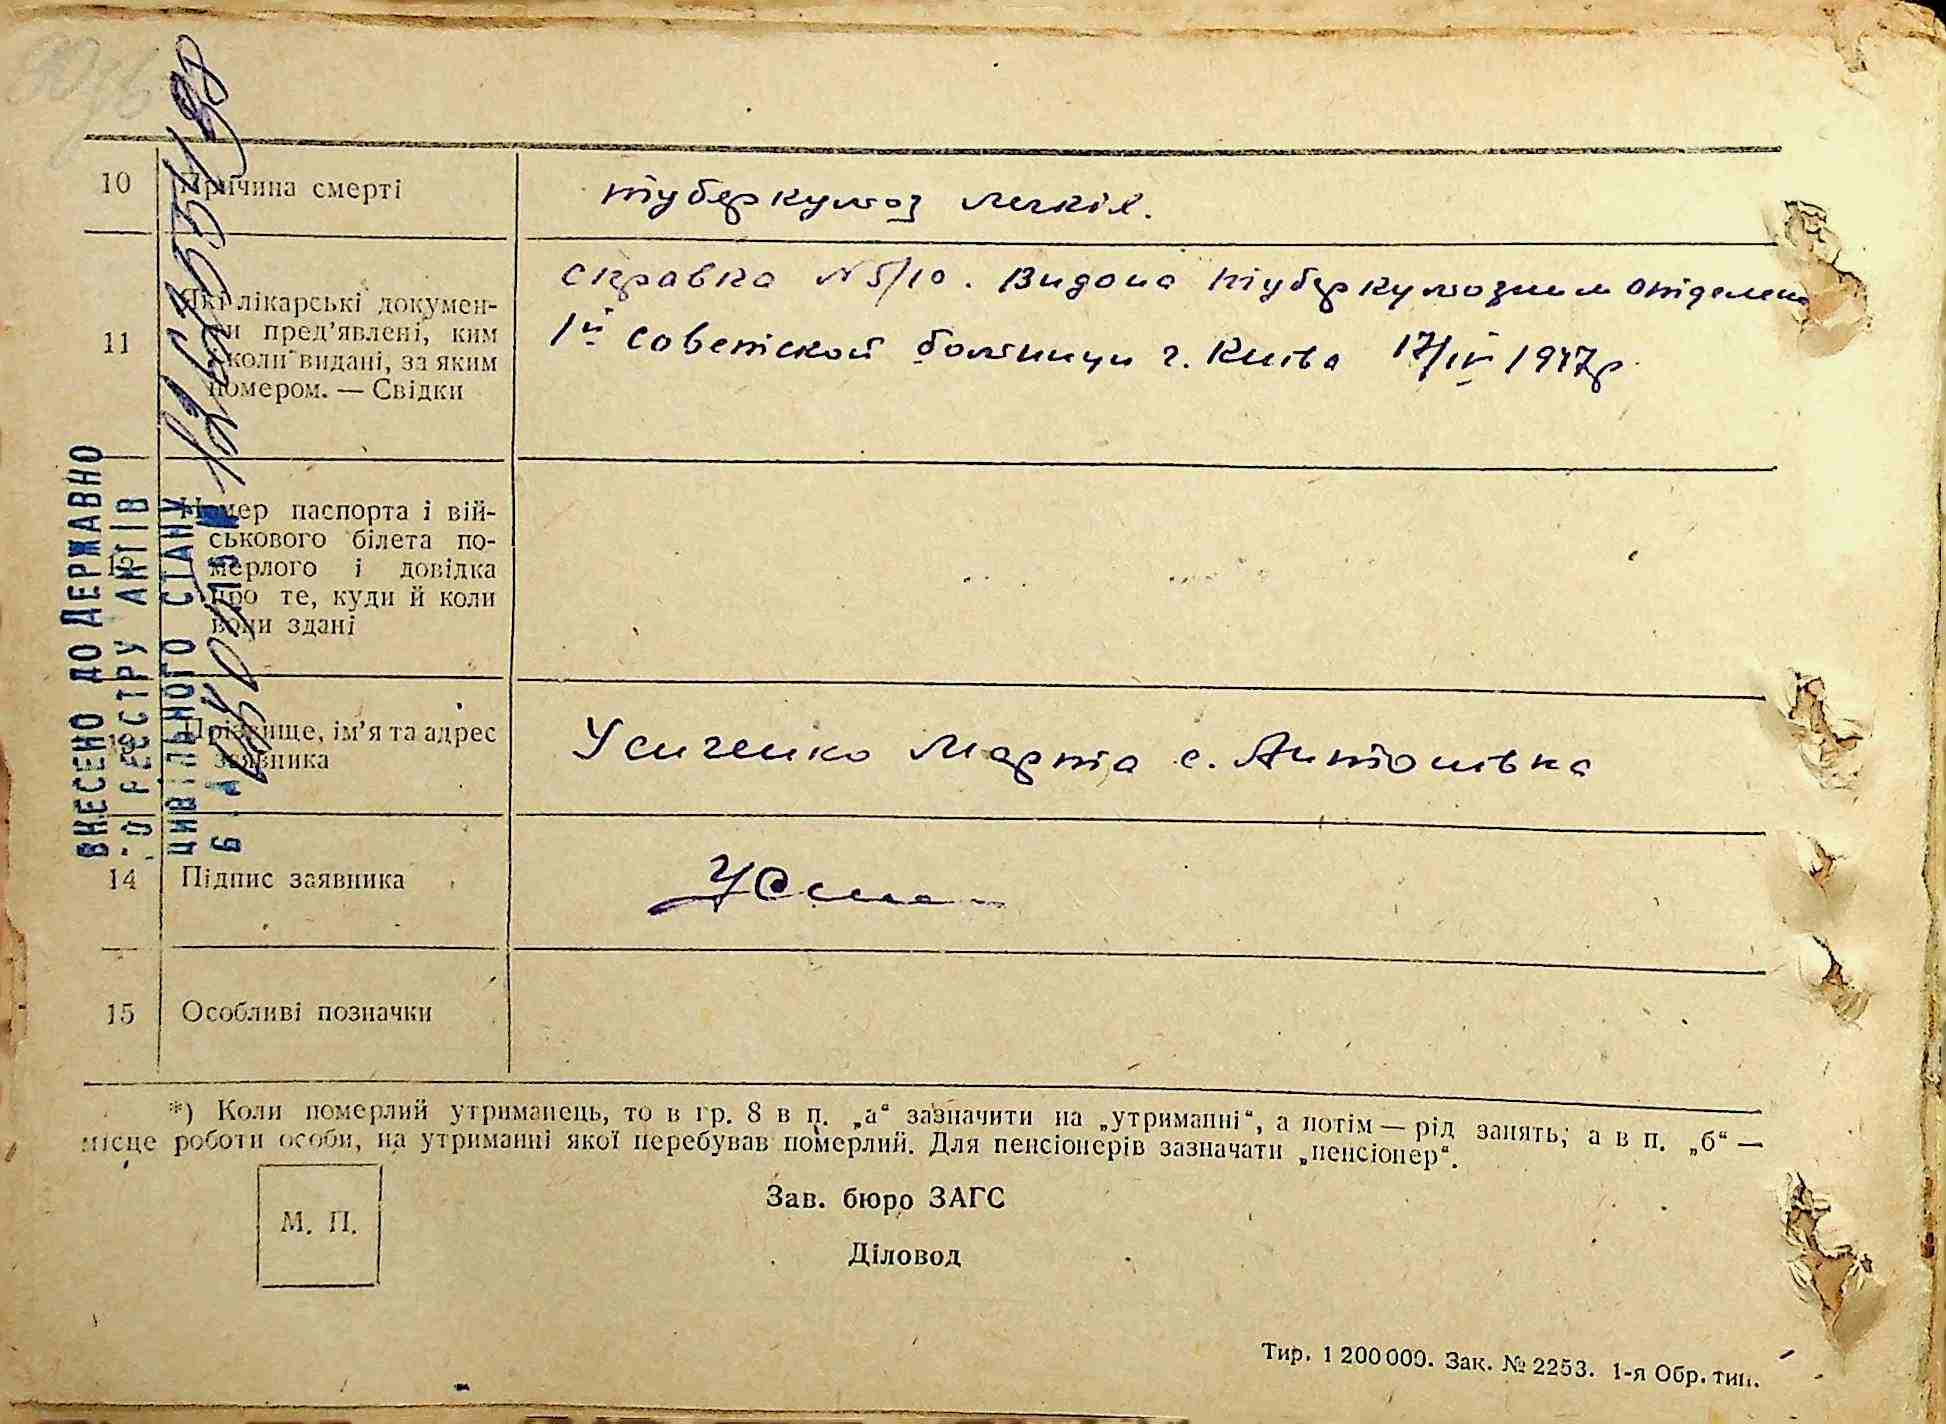 10 Причина смерті
туберкульоз легкіх.
11 Які лікарські докумен-
ти пред’явлені, ким
і коли видані, за яким
номером. — Свідки
Справка N 5/10. Видана туберкульозним
1й советской больници г. Київа 17/IV 1947р
Номер паспорта і вій-
ськового білета по-
мерлого і довідка
про те, куди й коли
вони здані
Прізвище, ім’я та адрес
заявника
Усиченко Марта с. Антонівка
14 Підпис заявника
15 Особливі позначки
*) Коли померлий утриманець, то в гр. 8 в п. „а“ зазначити на „утриманні“, а потім — рід занять; а в п. „б“ —
місце роботи особи, на утриманні якої перебував померлий. Для пенсіонерів зазначати „пенсіонер“.
М. П.
Зав. бюро ЗАГС
Діловод
Тир. 1 200 000. Зак. № 2253. 1-я Обр. тип.
ВНЕСЕНО ДО ДЕРЖАВНО
ГО РЕЄСТРУ АКТІВ
ЦИВІЛЬНОГО СТАНУ